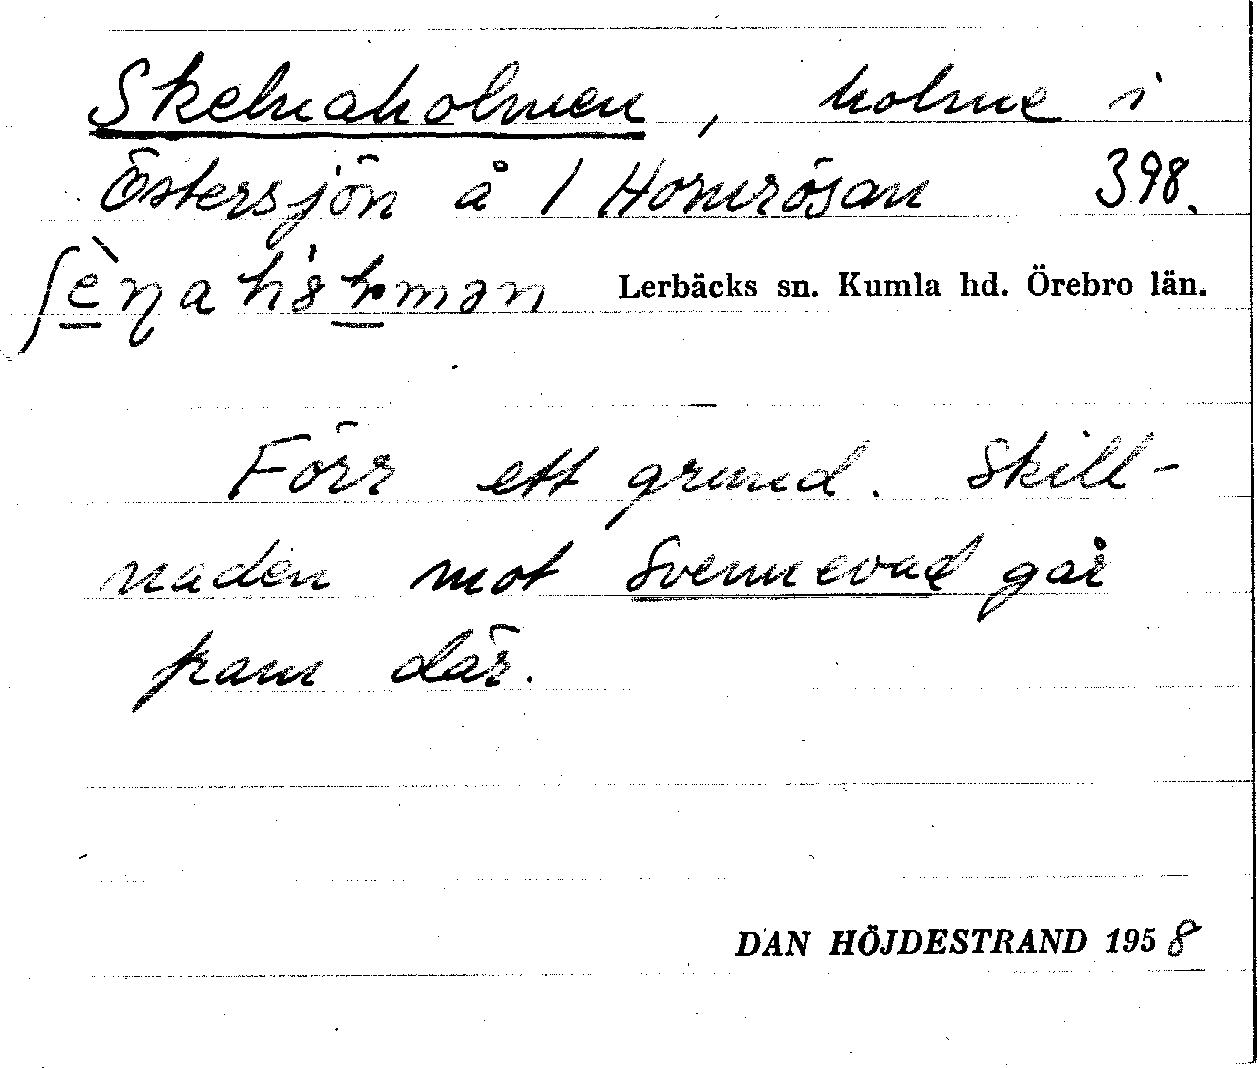 Skelnaholmen, holme i
Östersjön å 1 Hornrösan 398.
Lerbäcks sn. Kumla hd. Örebro län.
Förr ett grund. Skill-
naden mot Svennevad går
fram där.
DAN HÖJDESTRAND 1958